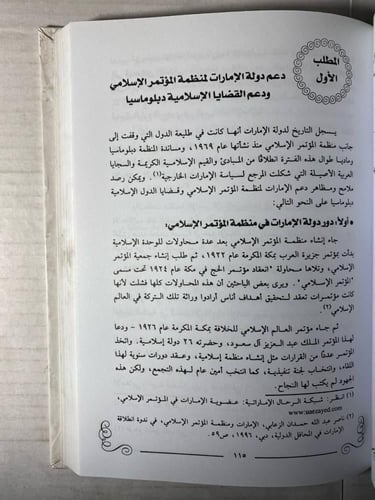 المطلب
الأول
دعم دولة الإمارات لمنظمة المؤتمر الإسلامي
ودعم القضايا الإسلامية دبلوماسيا
يسجل التاريخ لدولة الإمارات أنها كانت في طليعة الدول التي وقفت إلى
جانب منظمة المؤتمر الإسلامي منذ نشأتها عام ١٩٦٩، ومساندة المنظمة دبلوماسيا
وماديا طوال هذه الفترة انطلاقًا من المبادئ والقيم الإسلامية الكريمة والسجايا
العربية الأصيلة التي شكلت المرجع لسياسة الإمارات الخارجية(١). ويمكن رصد
ملامح ومظاهر دعم الإمارات لمنظمة المؤتمر الإسلامي وقضايا الدول الإسلامية
دبلوماسيا على النحو التالي:
• أولاً، دور دولة الإمارات في منظمة المؤتمر الإسلامي:
جاء إنشاء منظمة المؤتمر الإسلامي بعد عدة محاولات للوحدة الإسلامية
بدأت بمؤتمر جزيرة العرب بمكة المكرمة عام ١٩٢٢، ثم طلب إنشاء جمعية المؤتمر
الإسلامي، وتلاها محاولة "انعقاد مؤتمر الحج في مكة عام ١٩٢٤ تحت مسمى
"المؤتمر الإسلامي". ويرى بعض الباحثين أن هذه المحاولات كلها فشلت لأنها
كانت مؤتمرات تعقد لتحقيق أهداف أناس أرادوا وراثة تلك التركة في العالم
الإسلامي(٢).
ثم جاء مؤتمر العالم الإسلامي للخلافة بمكة المكرمة عام ١٩٢٦ - ودعا
لهذا المؤتمر الملك عبد العزيز آل سعود، وحضرته ٢٦ دولة إسلامية. واتخذ
المؤتمر عددًا من القرارات مثل إنشاء منظمة إسلامية، وعقد دورات سنوية لهذا
اللقاء، وانتخاب لجنة تنفيذية، كما انتخب أمين عام لهذا التجمع، ولكن هذه
الجهود لم يكتب لها النجاح.
(١) انظر: شبكة الرحال الإماراتية: عضوية الإمارات في المؤتمر الإسلامي،
www.uaezayed.com
(٢) ناصر عبد الله حمدان الزعابي، الإمارات ومنظمة المؤتمر الإسلامي، في ندوة انطلاقة
الإمارات في المحافل الدولية، دبي، ١٩٩٦، ص٥٩.
١١٥